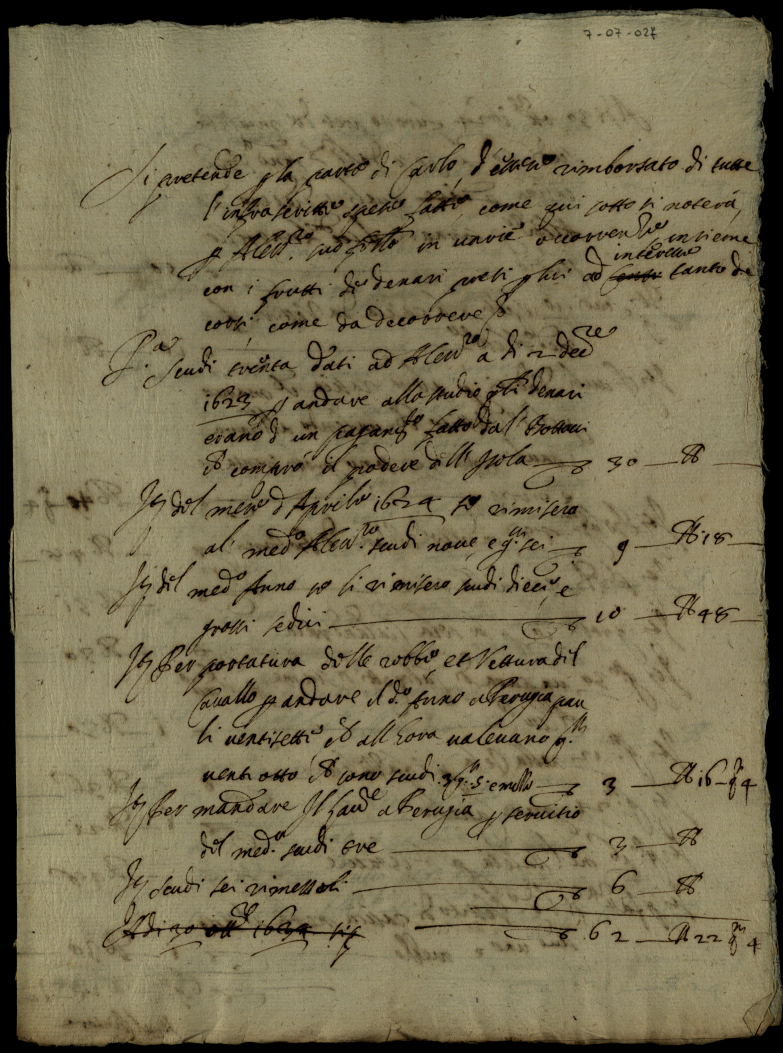 7-07-027
Si pretende p la parte di Carlo, d'essere rimborsato di tutte
l'infrascritte spese fatte come qui sotto si noterà,
p Aless.ro suo fratello in varie occorrenze insieme
con i frutti de denari presi p lui ad interesse tanto de
corsi, come da decorrere
P.a Scudi trenta dati ad Aless.ro a di 2 dec.re
1623 p andare allo studio, gli denari
erano d un pagam.to fatto dal Bottoni
che comprò il podere dell Isola — ∇ 30 — ₶ —
It del mese d Aprile 1624 se rimisero
al med.o Aless.ro scudi nove, e g.i sei — ∇ 9 — ₶ 18 —
It del med.o Anno se li rimisero scudi dieci, e
grossi sedici — ∇ 10 — ₶ 48 —
It Per portatura delle robbe, et Vettura del
Cavallo p andare il d.o Anno a Perugia pau
li ventisette, che all hora valevano g.i
vent otto che sono scudi 3 g.i 5 e mezzo — ∇ 3 — ₶ 16 — 4
It Per mandare a Perugia p servitio
del med.o scudi tre — ∇ 3 — ₶
It scudi sei rimessoli — ∇ 6 — ₶
Adi 30 ott.re 1624
∇ 62 — ₶ 22 4